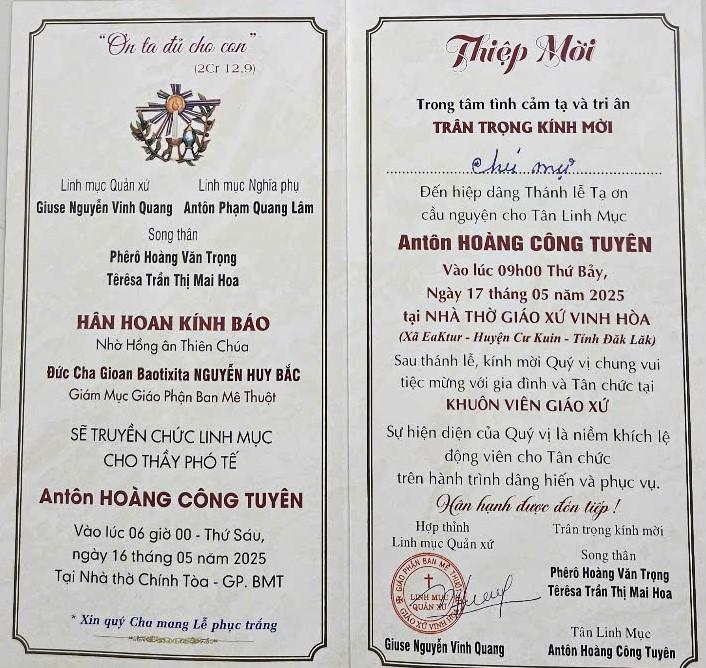 “Ơn ta đủ cho con”
(2Cr 12,9)
Linh mục Quản xứ Linh mục Nghĩa phụ
Giuse Nguyễn Vinh Quang Antôn Phạm Quang Lâm
Song thân
Phêrô Hoàng Văn Trọng
Têrêsa Trần Thị Mai Hoa
HÂN HOAN KÍNH BÁO
Nhờ Hồng ân Thiên Chúa
Đức Cha Gioan Baotixita NGUYỄN HUY BẮC
Giám Mục Giáo Phận Ban Mê Thuột
SẼ TRUYỀN CHỨC LINH MỤC
CHO THẦY PHÓ TẾ
Antôn HOÀNG CÔNG TUYÊN
Vào lúc 06 giờ 00 - Thứ Sáu,
ngày 16 tháng 05 năm 2025
Tại Nhà thờ Chính Tòa - GP. BMT
* Xin quý Cha mang Lễ phục trắng
Thiệp Mời
Trong tâm tình cảm tạ và tri ân
TRÂN TRỌNG KÍNH MỜI
Đến hiệp dâng Thánh lễ Tạ ơn
cầu nguyện cho Tân Linh Mục
Antôn HOÀNG CÔNG TUYÊN
Vào lúc 09h00 Thứ Bảy,
Ngày 17 tháng 05 năm 2025
tại NHÀ THỜ GIÁO XỨ VINH HÒA
(Xã EaKtur - Huyện Cư Kuin - Tỉnh Đăk Lăk)
Sau thánh lễ, kính mời Quý vị chung vui
tiệc mừng với gia đình và Tân chức tại
KHUÔN VIÊN GIÁO XỨ
Sự hiện diện của Quý vị là niềm khích lệ
động viên cho Tân chức
trên hành trình dâng hiến và phục vụ.
Hân hạnh được đón tiếp !
Hợp thỉnh
Linh mục Quản xứ
GIÁO PHẬN BAN MÊ THUỘT
LINH MỤC
QUẢN XỨ
GIÁO XỨ VINH
Giuse Nguyễn Vinh Quang
Trân trọng kính mời
Song thân
Phêrô Hoàng Văn Trọng
Têrêsa Trần Thị Mai Hoa
Tân Linh Mục
Antôn Hoàng Công Tuyên